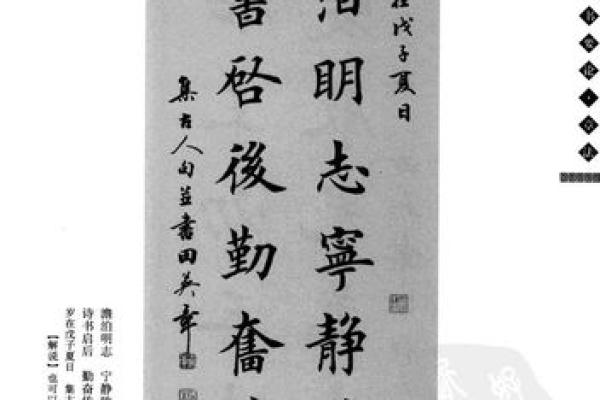 书要论·章法
在戊子夏日
泊明志寧静
書啓後勤奮
集古人句并書田英章
澹泊明志 宁静
诗书启后 勤奋
岁在戊子夏日 集古
【解说】也可以